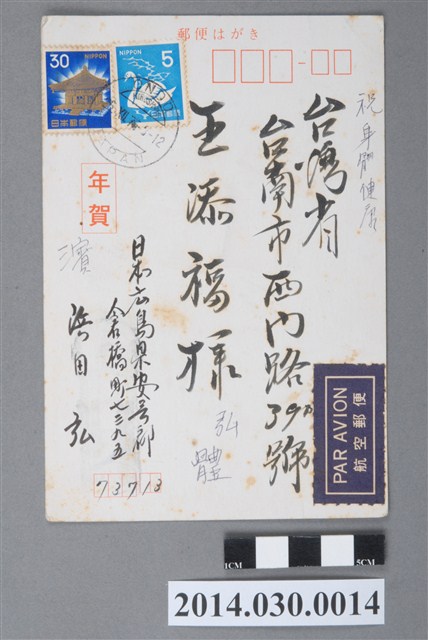 郵便はがき
30
NIPPON
日本郵便
5
NIPPON
日本郵便
年賀
台湾省
台南市西門路390號
王添福様
日本広島県安芸郡
倉橋町七三九五
浜田 弘
73713
祝身體健康
濱
弘
體
PAR AVION
航空郵便
1CM
5CM
2014.030.0014